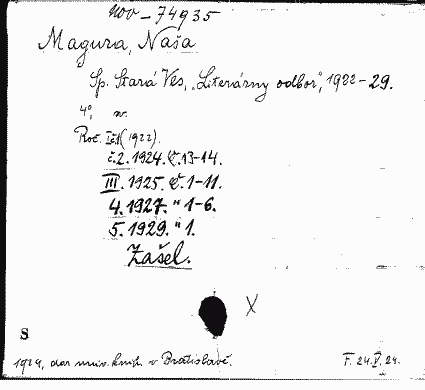 nov - 74935
Magura, Naša
Sp. Stará Ves, „Literárny odbor", 1922-29.
4°, n.
Roč. I.č.1 (1922).
č.2. 1924. č.13-14.
III. 1925. č. 1-11.
4. 1927. " 1-6.
5. 1929. " 1.
Zašel.
X
S
1924, dar univ. knih. v Bratislavě.
F. 24.V.24.